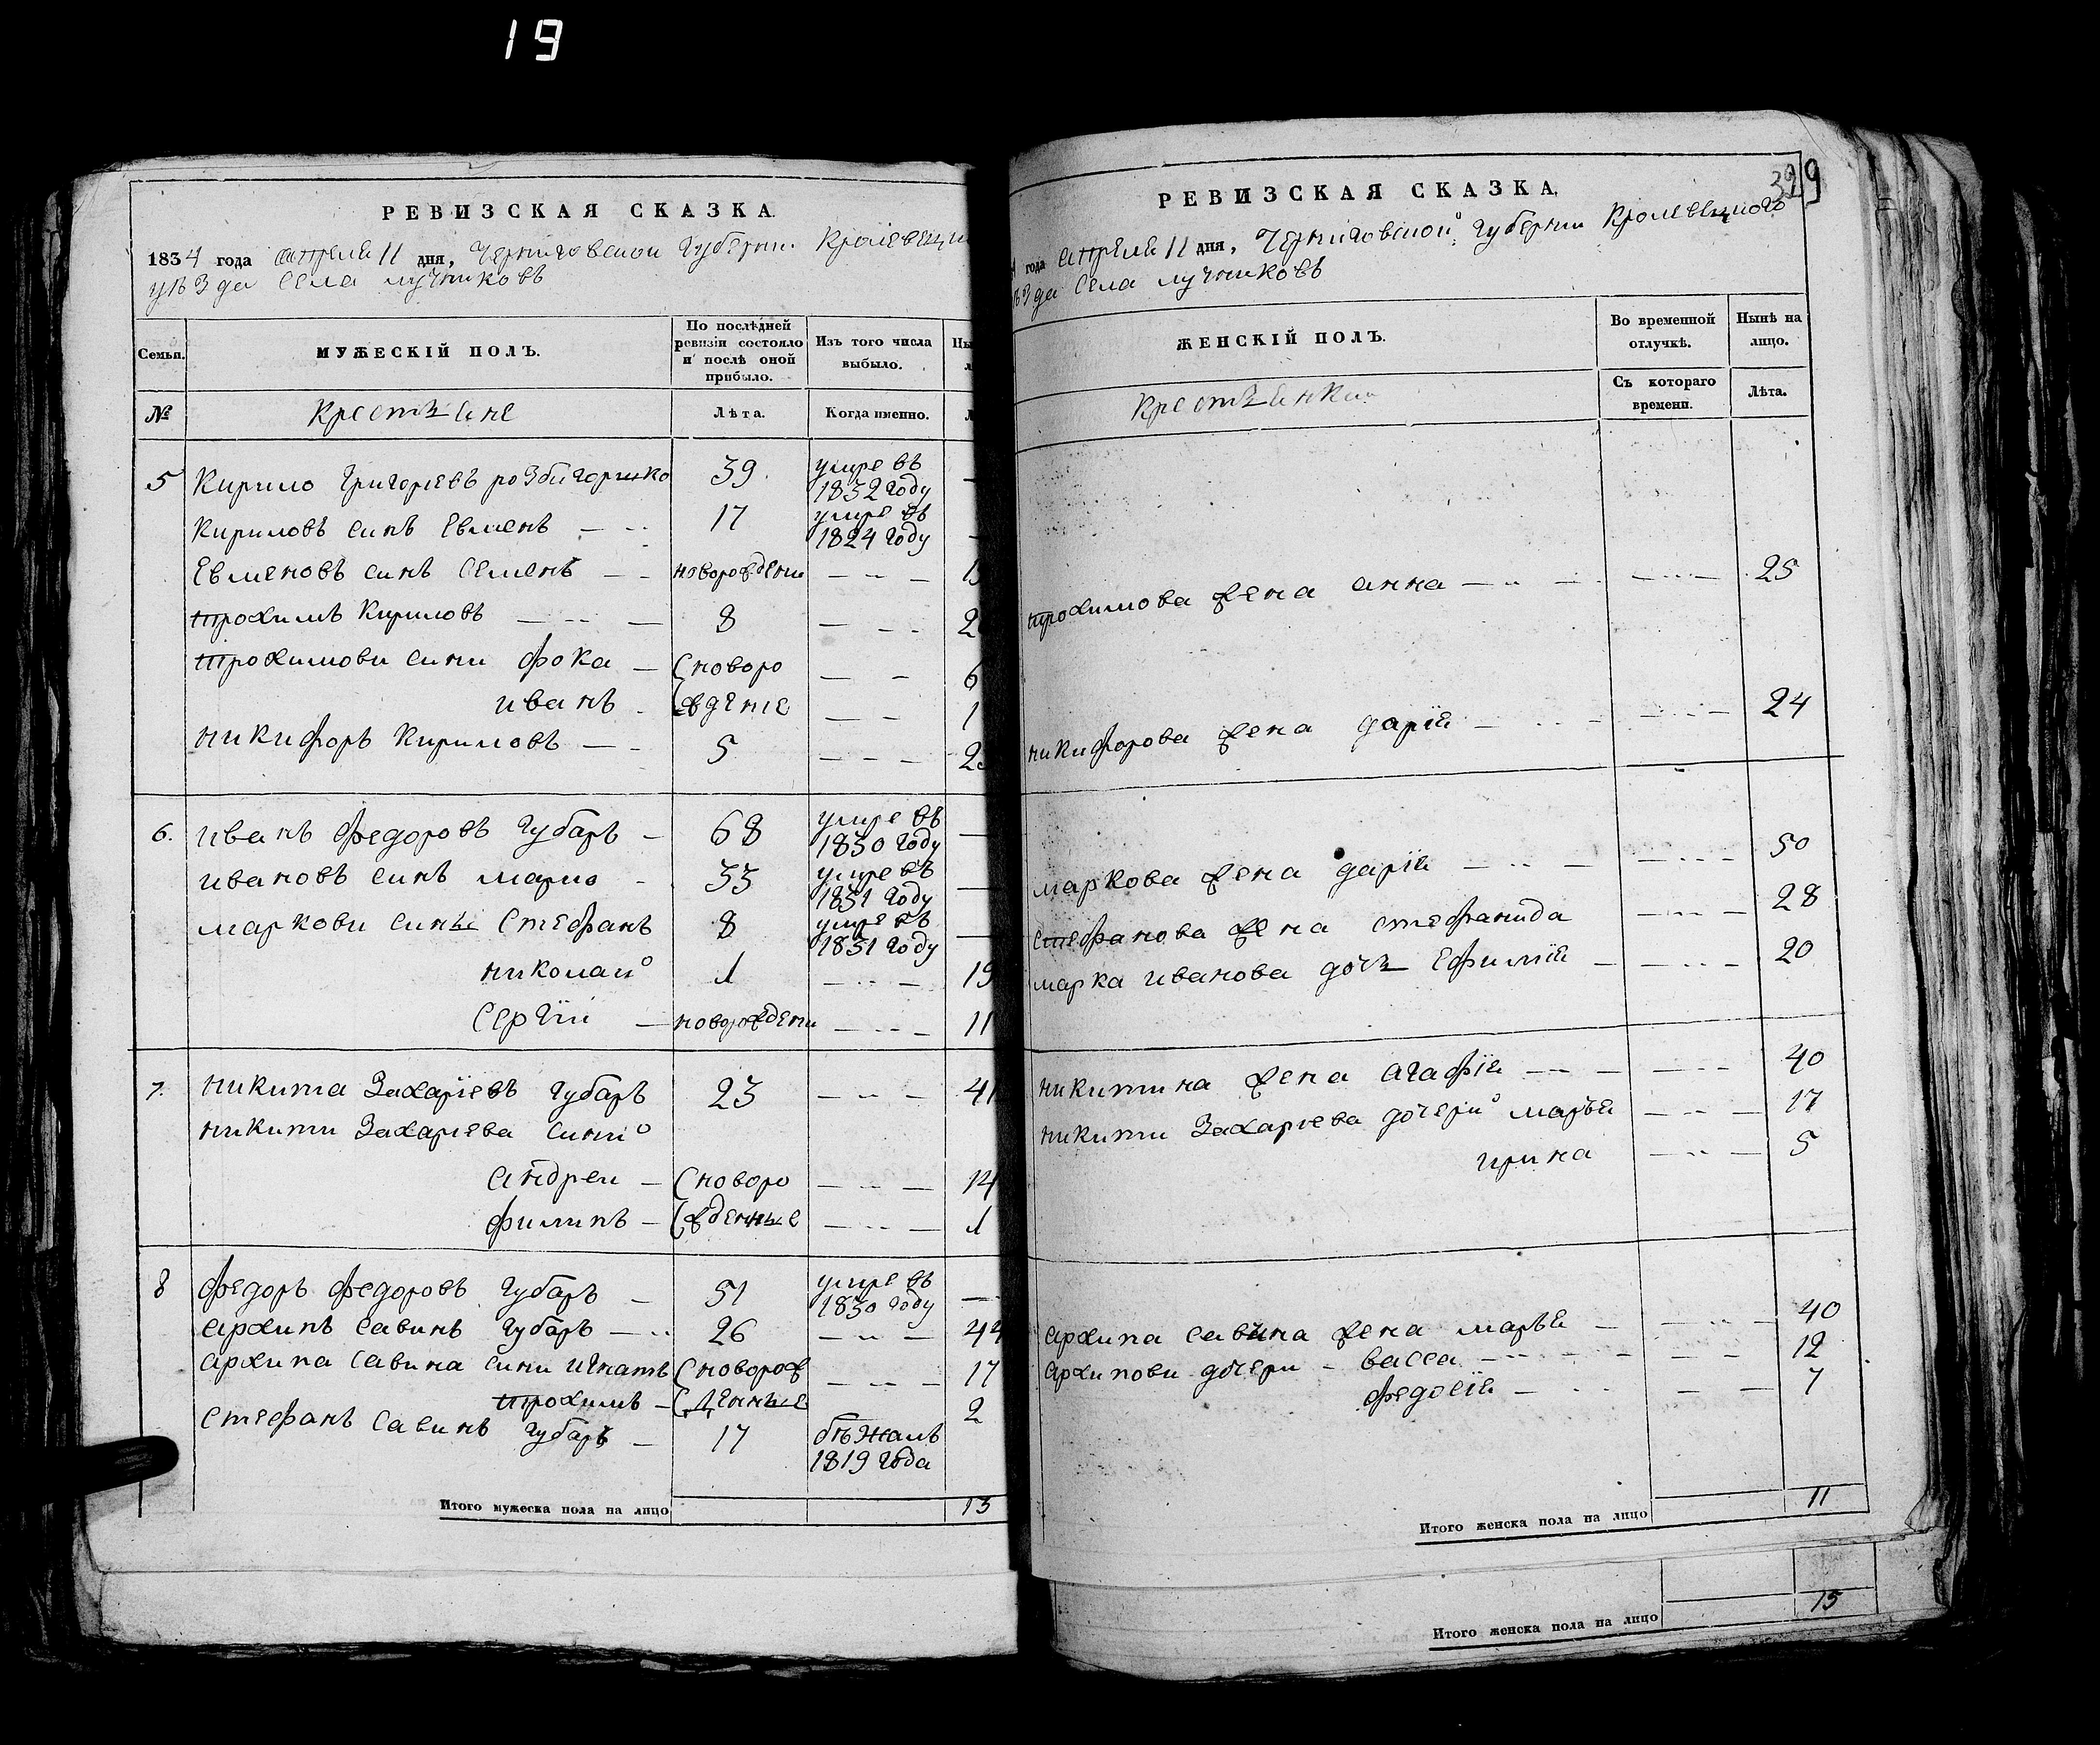 19
РЕВИЗСКАЯ СКАЗКА.
1834 года апреля 11 дня, Черниговской Губернии Кролевец
уѣзда Села лучниковъ
Семьи.
МУЖЕСКІЙ ПОЛЪ.
По послѣдней ревизіи состояло и послѣ оной прибыло.
Изъ того числа выбыло.
№
Крестьяне
Лѣта.
Когда именно.
5 Кирило Григоріевъ 39 умре въ 1832 году
Кириловъ синъ Евменъ 17 умре въ 1824 году
Евменовъ синъ Семенъ новорожденн
трохимъ Кириловъ 8
трохимови сини фока новоро 6
иванъ жденіе 1
никифоръ Кириловъ 5
6. иванъ федоровъ Губаръ 68 умре въ 1830 году
ивановъ синъ марко 33 умре въ 1831 году
маркови сине Стефанъ 8 умре въ 1831 году
николай 1 19
Сергій новорожденн 11
7. никита Захаріевъ Губаръ 23 41
никити Захаріева сини
андреи новоро 14
филипъ жденные 1
8 федоръ федоровъ Губаръ 51 умре въ 1830 году
архипъ савинъ Губаръ 26 44
архипа савина сини игнатъ новорож 17
трохимъ денные 2
стефанъ савинъ Губаръ 17 бѣжалъ 1819 года
Итого мужеска пола на лицо 13
РЕВИЗСКАЯ СКАЗКА.
года апреля 11 дня, Черниговской Губернии Кролевецкого
уѣзда Села лучниковъ
ЖЕНСКІЙ ПОЛЪ.
Во временной отлучкѣ.
Нынѣ на лицо.
Крестьянки
Съ котораго времени.
Лѣта.
трохимова жена анна 25
никифорова жена дарія 24
маркова жена дарія 50
стефанова жена стефанида 28
марка иванова дочь Ефимія 20
никитина жена агафія 40
никити Захаріева дочери марья 17
ирина 5
архипа савина жена марья 40
архипови дочери васса 12
федосія 7
Итого женска пола на лицо 11
Итого женска пола на лицо 15